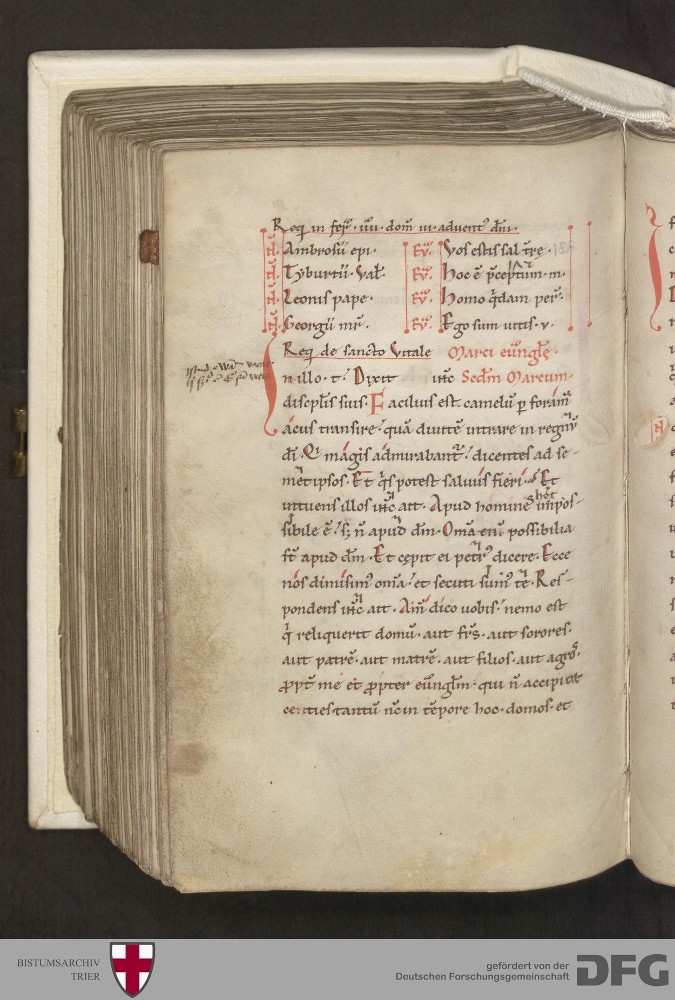 Req in fer̄. iiii. dom̄ iii. aduent᷒ dn̄i.
N̄. Ambrosii epi. Eū. Vos estis sal tr̄e.
N̄. Tyburtii. Val̄. Eū. Hoc ē p̄ceptum. m.
N̄. Leonis pape. Eū. Homo q̄dam per̄.
N̄. Georgii mr̄. Eū. Ego sum uitis. v.
Req de sancto Vitale Marci euuīgle.
In illo. t. Dixit ih̄c Secdm̄ Marcum.
discpl̄is suis. Facilius est camelū ꝑ forām̄
acus transire. quā diuitē intrare in regnū
dī. Qi magis admirabant᷑. dicentes ad se-
met ipsos. Et q̄s potest saluus fieri. Et
intuens illos ih̄c ait. Apud hominēs hoc impos-
sibile ē. s; n̄ apud dm̄. Om̄a eni possibilia
st̄ apud dm̄. Et cepit ei petr᷒ dicere. Ecce
nos dimisim᷒ om̄a. et secuti sum᷒ te. Res-
pondens ih̄c ait. Am̄ dico uobis. nemo est
q̄ reliquerit domū. aut fr̄s. aut sorores.
aut patrē. aut matrē. aut filios. aut agros.
ꝓpt̄ me et ꝓpter euu̅glm̄. qui n̄ accipiat
centies tantū nc̄ in tēpore hoc. domos. et
BISTUMSARCHIV
TRIER
gefördert von der
Deutschen Forschungsgemeinschaft
DFG